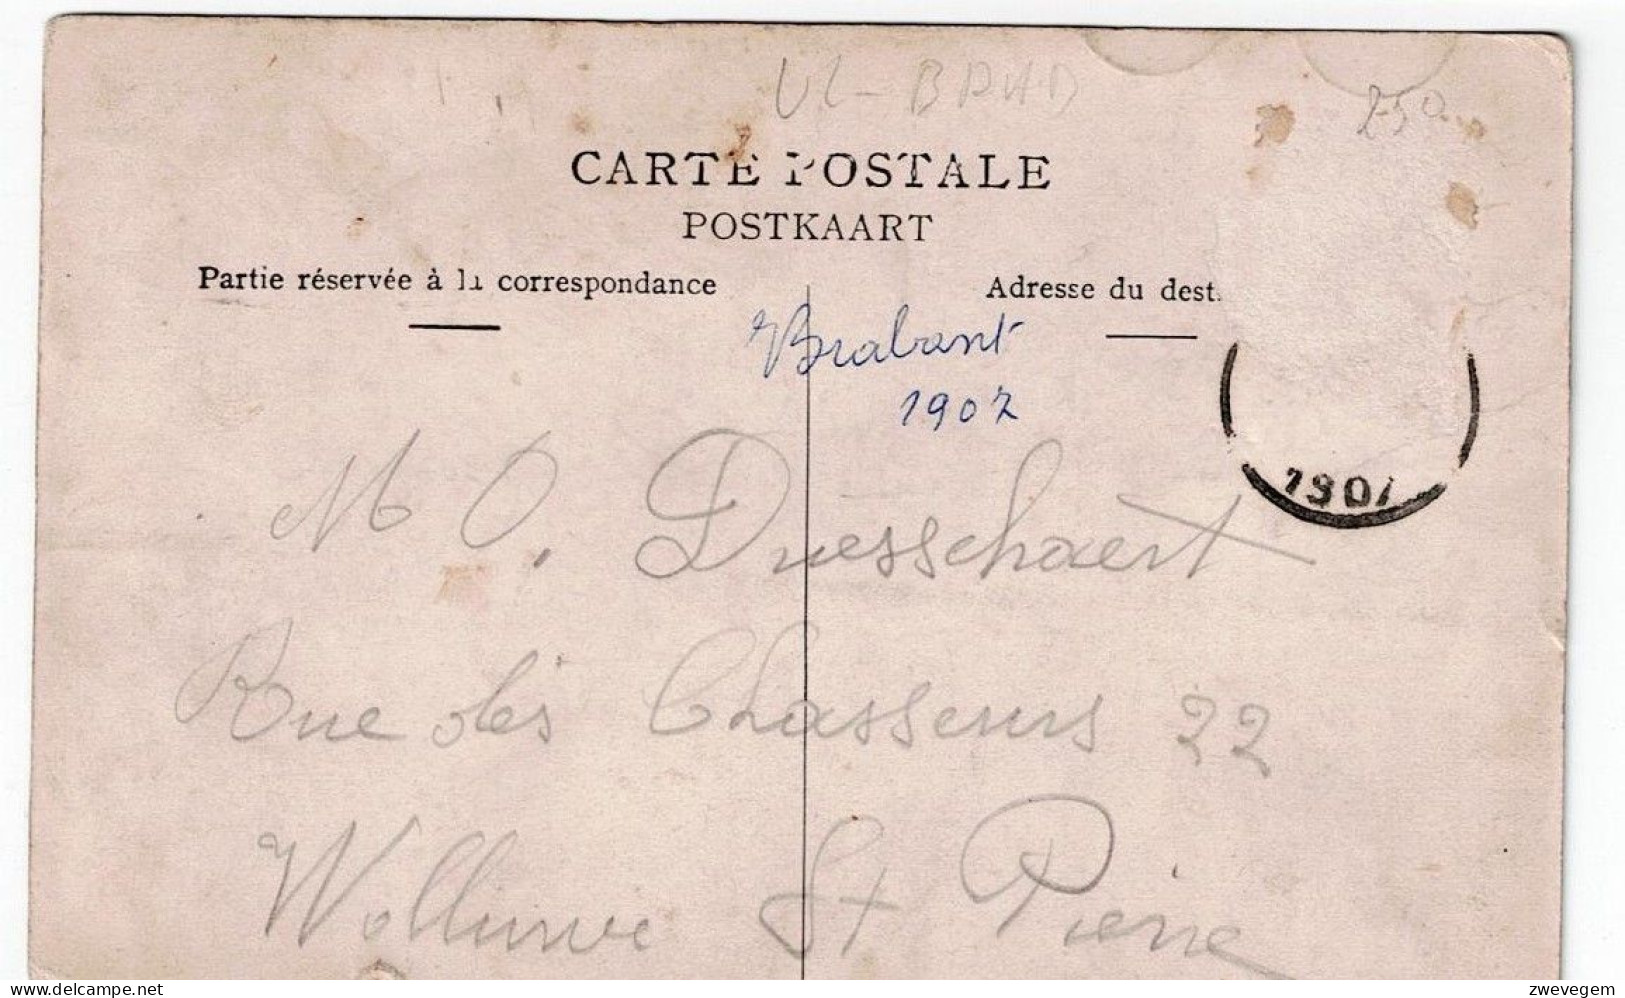 VL-BRAB
250
CARTE POSTALE
POSTKAART
Partie réservée à la correspondance
Adresse du dest.
Brabant
1907
1907
M O. Driesschaert
Rue des Chasseurs 22
Wolluwe St Pierre
www.delcampe.net
zwevegem